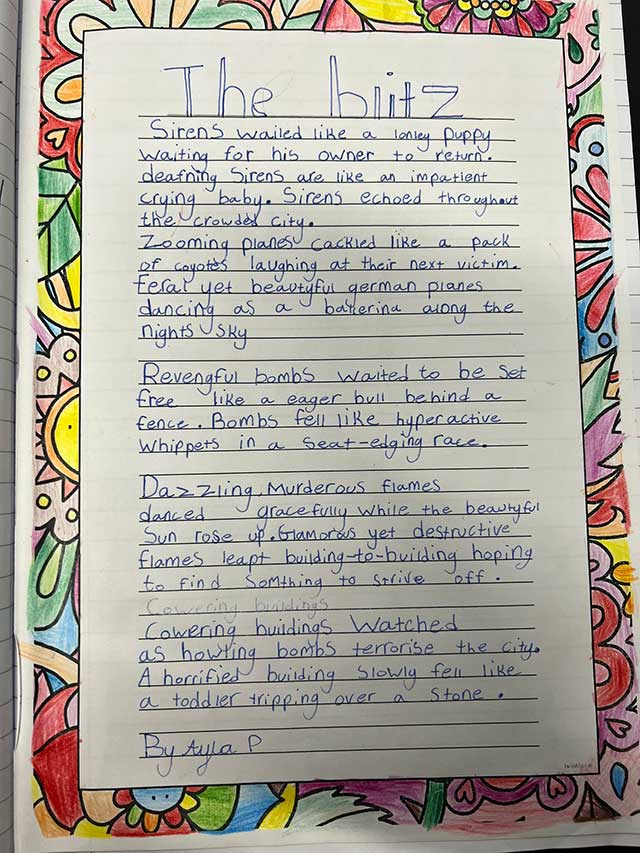 The blitz
Sirens wailed like a lonley puppy
waiting for his owner to return.
deafning Sirens are like an impatient
crying baby. Sirens echoed throughout
the crowded city.
Zooming planes cackled like a pack
of coyotes laughing at their next victim.
feral yet beautyful german planes
dancing as a ballerina along the
nights sky
Revengful bombs waited to be set
free like a eager bull behind a
fence. Bombs fell like hyperactive
whippets in a seat-edging race.
Dazzling, Murderous flames
danced gracefully while the beautyful
Sun rose up. Glamorous yet destructive
flames leapt building-to-building hoping
to find somthing to strive off.
Cowering buildings
Cowering buildings Watched
as howling bombs terrorise the city.
A horrified building slowly fell like
a toddler tripping over a stone.
By Ayla P